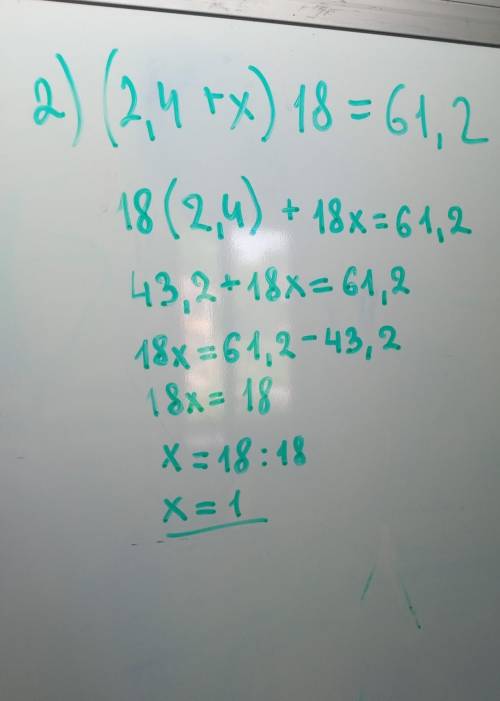 2) (2,4 + x) 18 = 61,2
18 (2,4) + 18x = 61,2
43,2 + 18x = 61,2
18x = 61,2 - 43,2
18x = 18
x = 18 : 18
x = 1